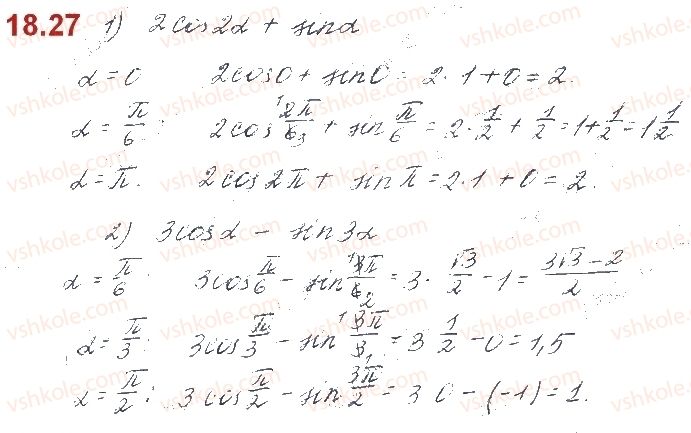 18.27 1) 2cos2α + sinα
α = 0 2cos0 + sin0 = 2·1 + 0 = 2.
α = π/6: 2cos 2π/6 + sin π/6 = 2·1/2 + 1/2 = 1 + 1/2 = 1 1/2
α = π. 2cos2π + sinπ = 2·1 + 0 = 2.
2) 3cosα − sin3α
α = π/6 3cos π/6 − sin 3π/6 = 3·√3/2 − 1 = (3√3 − 2)/2
α = π/3: 3cos π/3 − sin 3π/3 = 3 1/2 − 0 = 1,5
α = π/2: 3cos π/2 − sin 3π/2 = 3 0 − (−1) = 1.